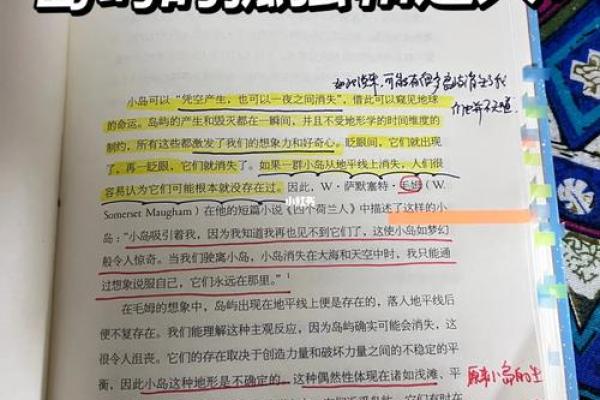 如此说来,可能有很多岛屿消失了
小岛可以“凭空产生,也可以一夜之间消失”,借此可以窥见地球
的命运。岛屿的产生和毁灭都在一瞬间,并且不受地形学的时间维度的
制约,所有这些都激发了我们的想象力和好奇心。眨眼间,它们就出现
了,再一眨眼,它们就消失了。如果一群小岛从地平线上消失,人们很
容易认为它们可能根本就没存在过。因此,W·萨默塞特·毛姆(W.
小红书
Somerset Maugham)在他的短篇小说《四个荷兰人》中描述了这样的小
岛:“小岛吸引着我,因为我知道我再也见不到它们了,这使小岛如梦幻
般令人惊奇。当我们驶离小岛,小岛消失在大海和天空中时,我只能通
过想象说服自己,它们永远在那里。”1
在毛姆的想象中,岛屿出现在地平线上便是存在的,落人地平线后
便不复存在。我们能理解这种主观反应,因为岛屿确实可能会消失,这
很令人沮丧。它们的存在取决于创造力量和破坏力量之间的不稳定的平
衡,因此小岛这种地形是不确定的。这种偶然性体现在诸如浅滩、平
原来小岛的生